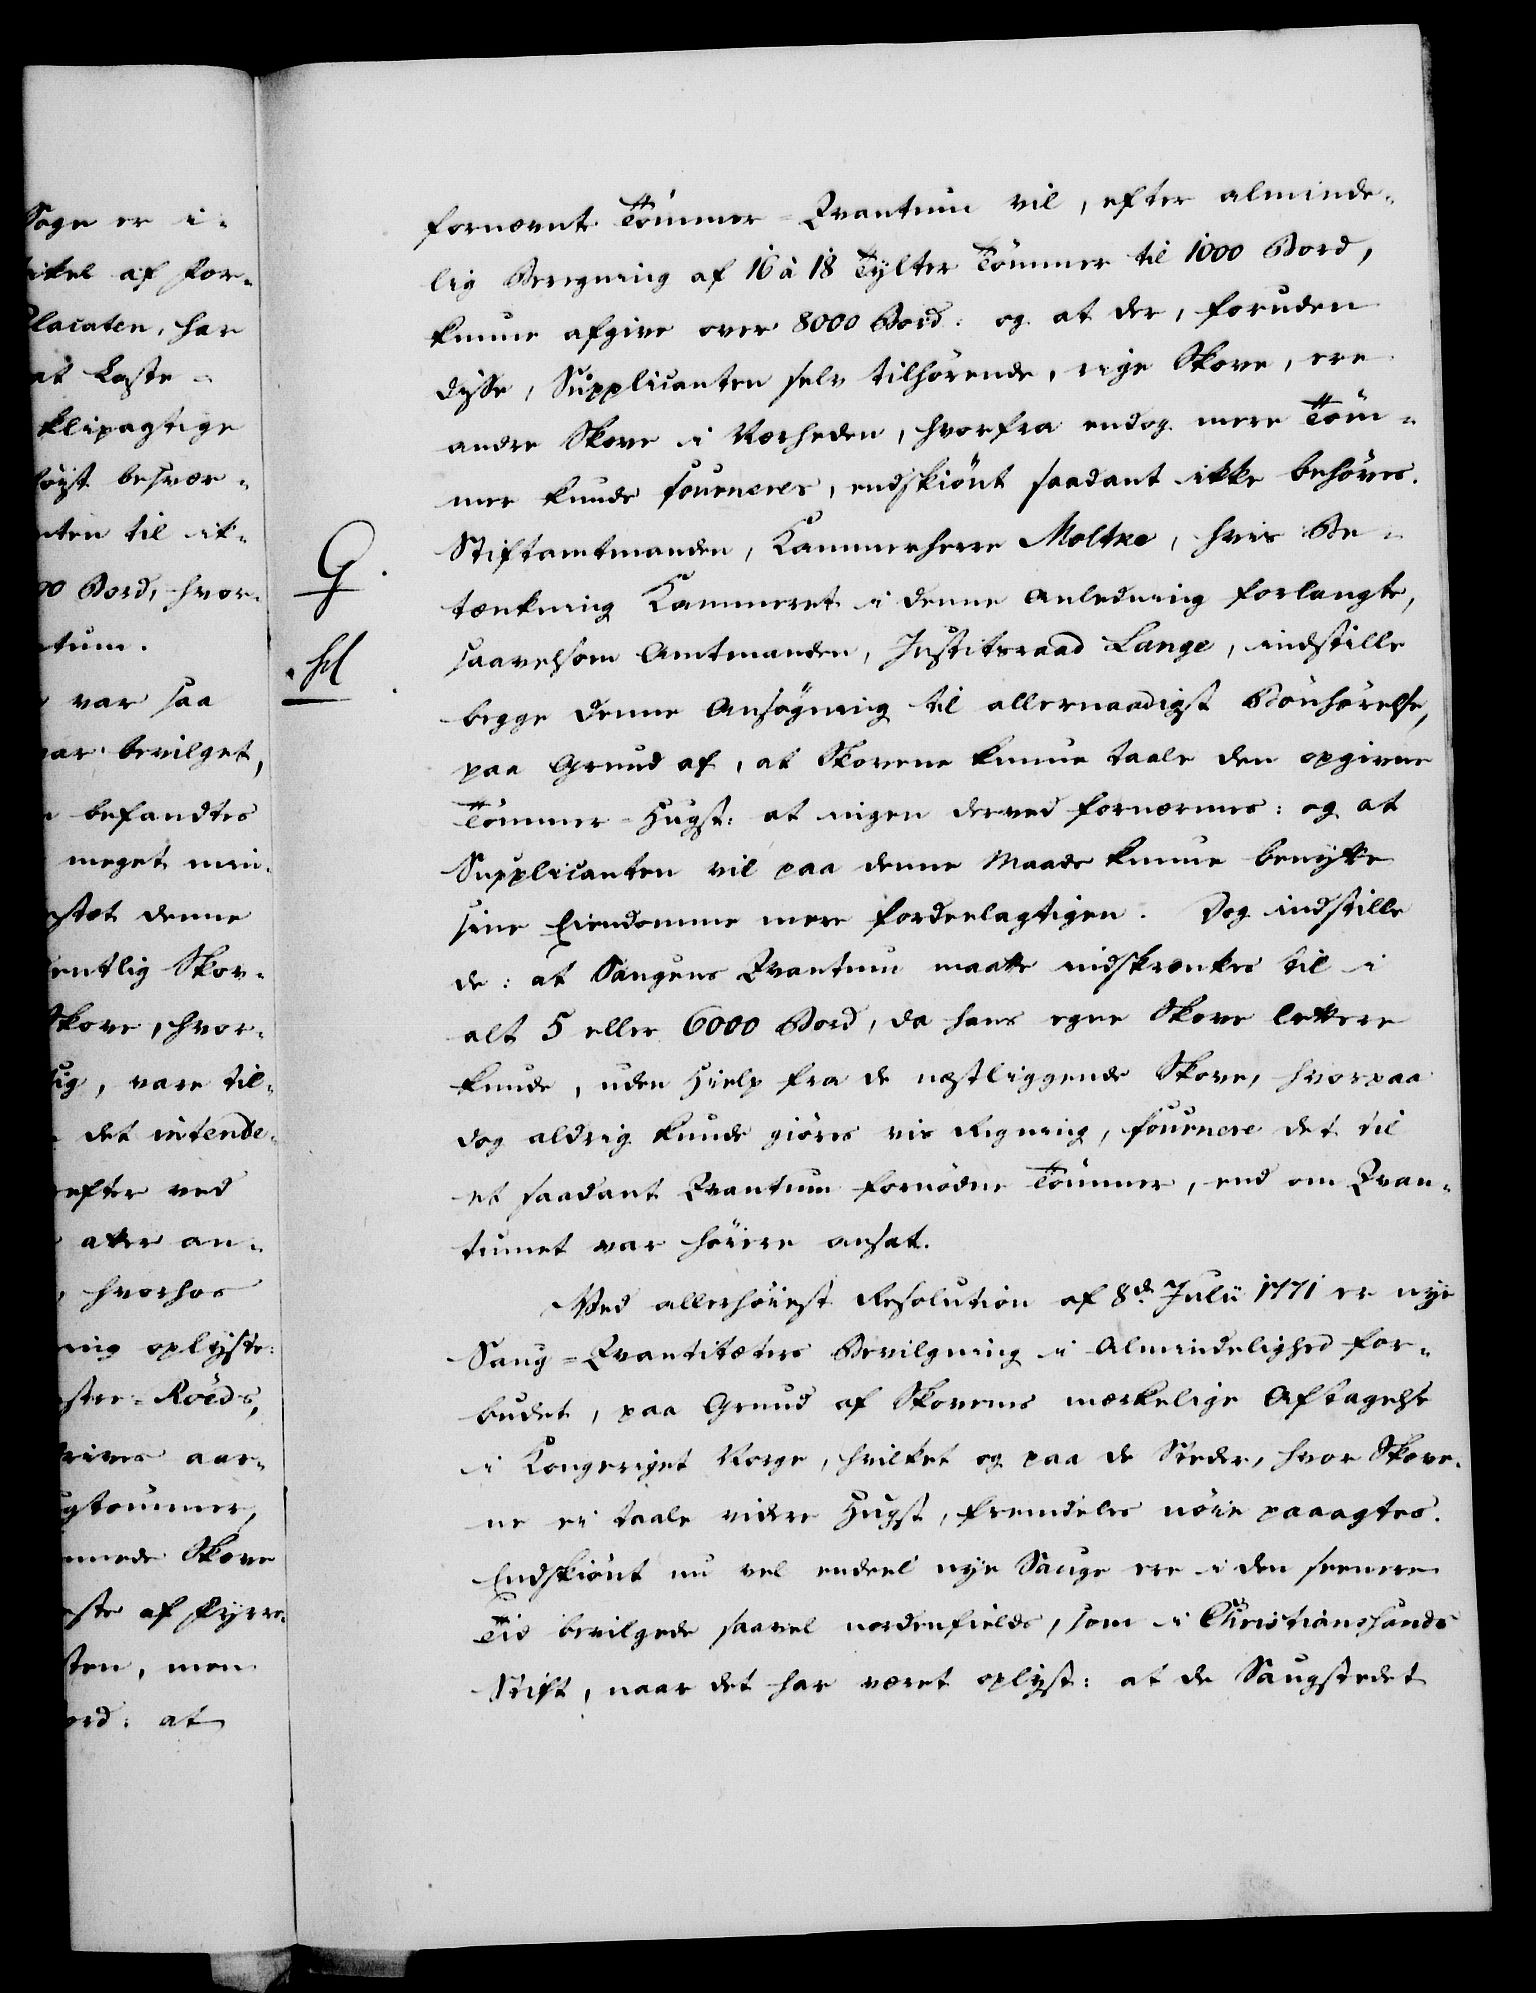 Sage er i-
tikel af For-
Placaten, har
at Laste-
kligagtige
höist besvær-
nten til ik-
00 Bord, hvor-
ntum.
var saa
var bevilget,
befandtes
meget min-
denne
entlig Skov-
Skove, hvor-
, vare til-
det intende-
efter ved
atter an-
, hvorhos
ning oplyste:
stre-Röeds,
rives aar-
gtömmer,
Skove
este af Fyrre-
sten, men
ord: at
fornævnte Tömmer-Qvantum vil, efter alminde-
lig Beregning af 16 à 18 Tylter Tömmer til 1000 Bord,
kunne afgive over 8000 Bord: og at der, foruden
disse, Supplicanten selv tilhörende, rige Skove, ere
andre Skove i Nærheden, hvorfra endog mere Töm-
mer kunde fourneres, endskiönt saadant ikke behöves.
G. Stiftamtmanden, Kammerherre Moltke, hvis Be-
tænkning Kammeret i denne Anledning forlangte,
H. saavelsom Amtmanden, Justitsraad Lange, indstille
begge denne Ansögning til allernaadigst Bönhörelse,
paa Grund af, at Skovene kunne taale den opgivne
Tömmer-Hugst: at ingen derved fornærmes: og at
Supplicanten vil paa denne Maade kunne benytte
sine Eiendomme mere fordeelagtigen. Dog indstille
de: at Saugens Qvantum maatte indskrænkes til i
alt 5 eller 6000 Bord, da hans egne Skove lettere
kunde, uden Hielp fra de næstliggende Skove, hvorpaa
dog aldrig kunde giöres vis Regning, fournere det til
et saadant Qvantum fornödne Tömmer, end om Qvan-
tumet var höiere ansat.
Ved allerhöiest Resolution af 8de Julii 1771 er nye
Saug-Qvantitæters Bevilgning i Almindelighed for-
budet, paa Grund af Skovenes mærkelige Aftagelse
i Kongeriget Norge, hvilket og paa de Steder, hvor Skove-
ne ei taale videre Hugst, fremdeles nöie paaagtes.
Endskiönt nu vel endeel nye Sauge ere i den seenere
Tid bevilgede saavel nordenfields, som i Christianssands
Stift, naar det har været oplyst: at de Saugstedet